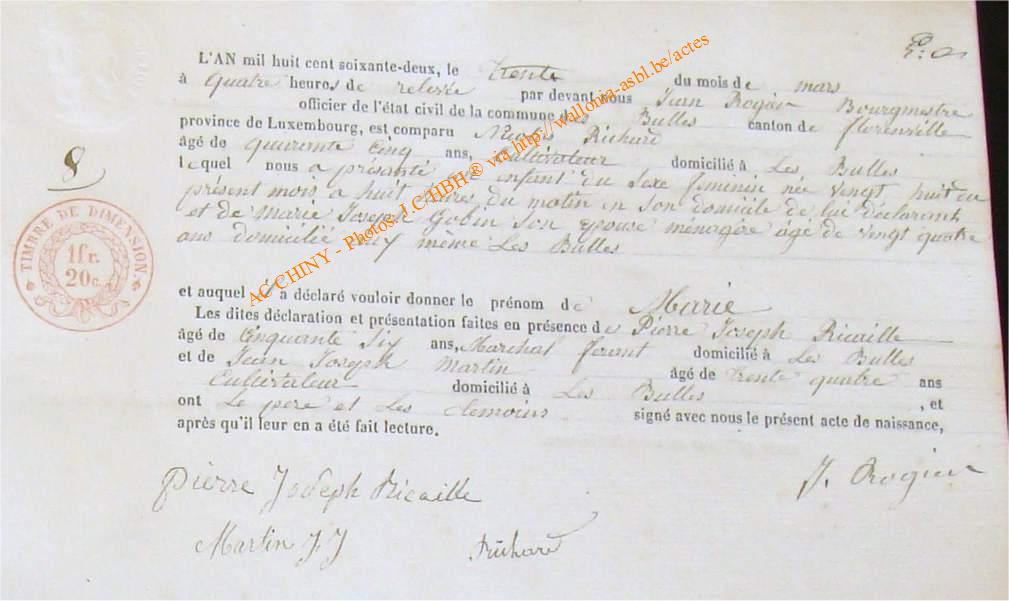 L'AN mil huit cent soixante-deux, le trente du mois de mars
à quatre heures de relevée par devant nous Jean Rogier Bourgmestre
officier de l'état civil de la commune des Bulles canton de florenville
province de Luxembourg, est comparu Richard
âgé de quarante cinq ans, Cultivateur domicilié à Les Bulles
lequel nous a présenté un enfant du sexe feminin née vingt huit du
présent mois a huit heures du matin en son domicile de lui déclarant
et de marie Joseph Gobin son epouse ménagère age de vingt quatre
ans domicilié même Les Bulles
et auquel il a déclaré vouloir donner le prénom de Marie
Les dites déclaration et présentation faites en présence de Pierre Joseph Ricaille
âgé de Cinquante Six ans, Marchal ferant domicilié à Les Bulles
et de Jean Joseph Martin âgé de trente quatre ans
Cultivateur domicilié à Les Bulles , et
ont Le pere et Les temoins signé avec nous le présent acte de naissance,
après qu'il leur en a été fait lecture.
8
TIMBRE DE DIMENSION
1fr.
20c.
J. Rogier
Pierre Joseph Ricaille
Martin J.J
Richard
AC CHINY - Photos J.C. HBH® via http://wallonia-asbl.be/actes